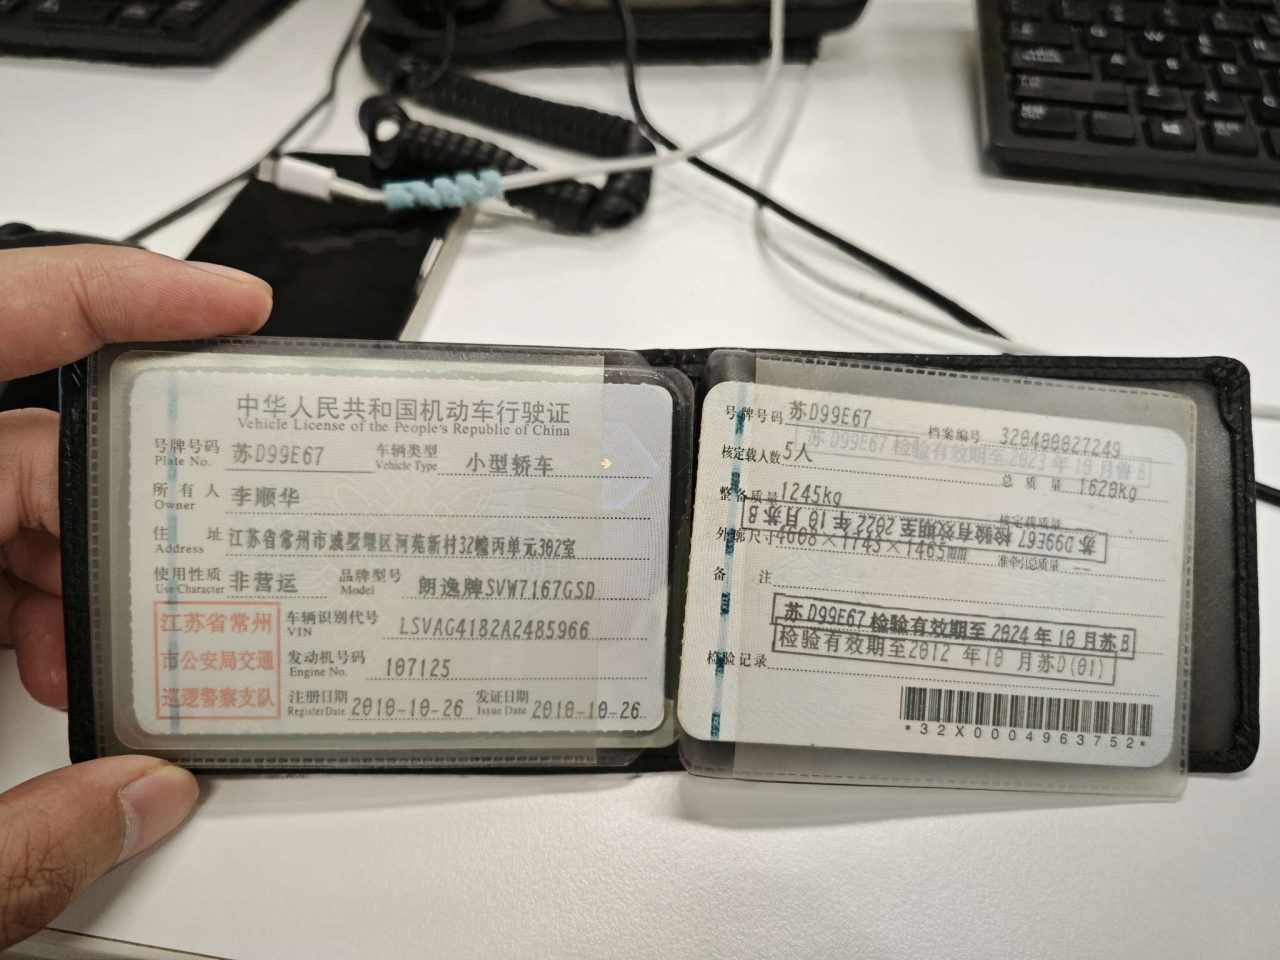 中华人民共和国机动车行驶证
Vehicle License of the People's Republic of China
号牌号码 Plate No. 苏D99E67 车辆类型 Vehicle Type 小型轿车
所有人 Owner 李顺华
住址 Address 江苏省常州市戚墅堰区河苑新村32幢丙单元302室
使用性质 Use Character 非营运 品牌型号 Model 朗逸牌SVW7167GSD
江苏省常州
市公安局交通
巡逻警察支队
车辆识别代号 VIN LSVAG4182A2485966
发动机号码 Engine No. 107125
注册日期 Register Date 2010-10-26 发证日期 Issue Date 2010-10-26
号牌号码 苏D99E67 档案编号 320400027249
苏D99E67 检验有效期至 2023 年 10 月 B
核定载人数 5人 总质量 1620kg
整备质量 1245kg 核定载质量 --
苏D99E67 检验有效期至 2022 年 10 月 苏B
外廓尺寸 4608×1743×1465mm 准牵引总质量 --
备注
苏D99E67 检验有效期至 2024 年 10 月 苏B
检验有效期至2012 年10 月苏D(01)
检验记录
*32X0004963752*